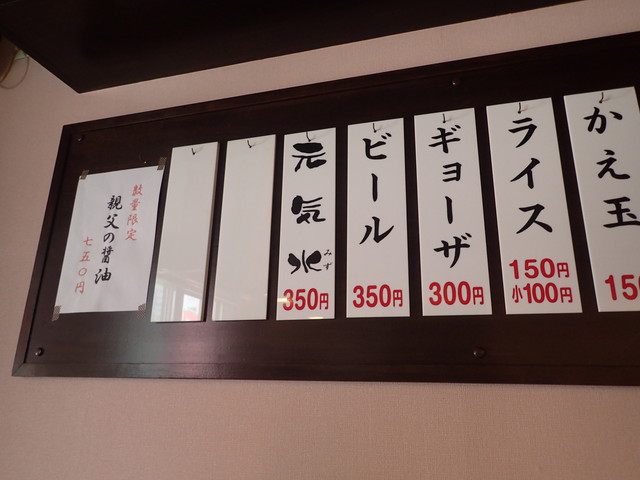 かえ玉
150
ライス
150円
小100円
ギョーザ
300円
ビール
350円
元気水
みず
350円
数量限定
親父の醤油
七五〇円